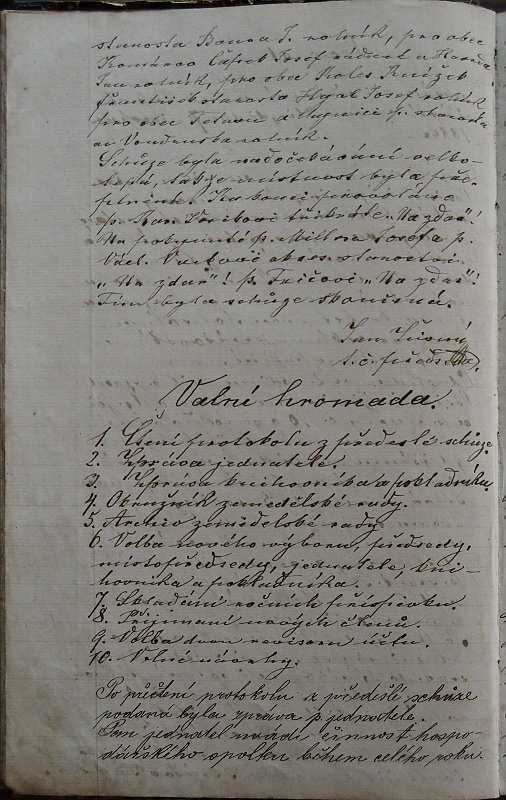 starosta Bouca J. rolník, pro obec
Komárov Cífrek Josef rádní a Havrda
Jan rolník, pro obec Koles Knížek
František starosta Hýal Josef rolník
pro obec Tetov a p. starosta
a Vondruska rolník.
Schůze byla nad očekávání velko-
lepá, takže místnost byla pře-
plněna. Ku konci provoláno
p. Kar. třikráte „Na zdar"!
Na pokynutí p. Millera Josefa p.
Václ. okres. starostovi
„Na zdar"! p. Fričovi „Na zdar"!
Tím byla schůze skončena.
Jan
t. č. předseda.
Valná hromada.
1. Čtení protokolu z předešlé schůze.
2. Zpráva jednatele.
3. Zpráva knihovníka a pokladníka.
4. Okružník zemědělské rady.
5. Archiv zemědělské rady.
6. Volba nového výboru, předsedy,
místopředsedy, jednatele, kni-
hovníka a pokladníka.
7. Skládání ročních příspěvku.
8. Přijímaní nových členů.
9. Volba dvou revisoru účtu.
10. Volné návrhy.
Po přečtení protokolu z předešlé schůze
podaná byla zpráva p. jednatele.
Pan jednatel uvádí činnost hospo-
dářského spolku během celého roku.